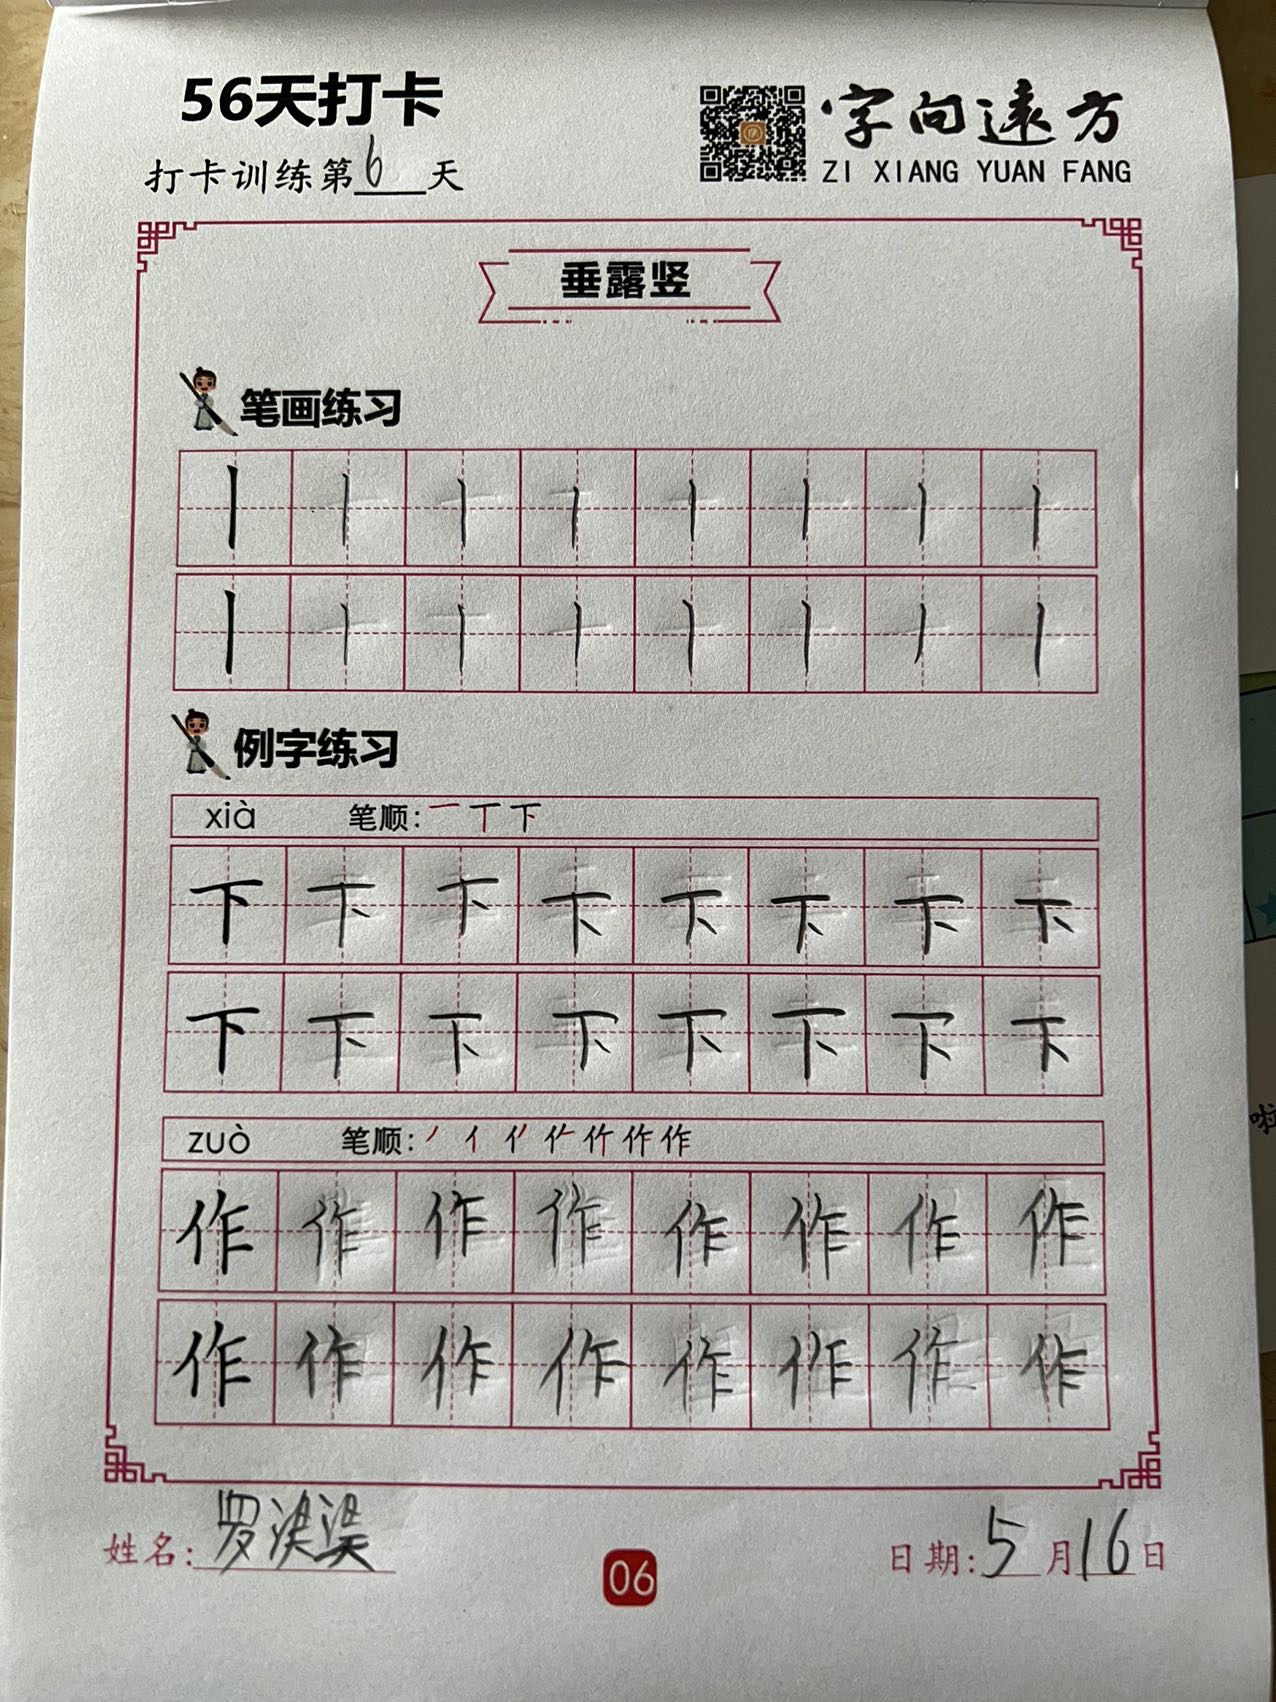 56天打卡
打卡训练第6天
字向遠方
ZI XIANG YUAN FANG
垂露竖
笔画练习
丨丨丨丨丨丨丨丨
丨丨丨丨丨丨丨丨
例字练习
xià 笔顺: 一 丅 下
下下下下下下下下
下下下下下下下下
zuò 笔顺: 丿 亻 作
作作作作作作作作
作作作作作作作作
姓名: 罗淇
06
日期: 5月16日